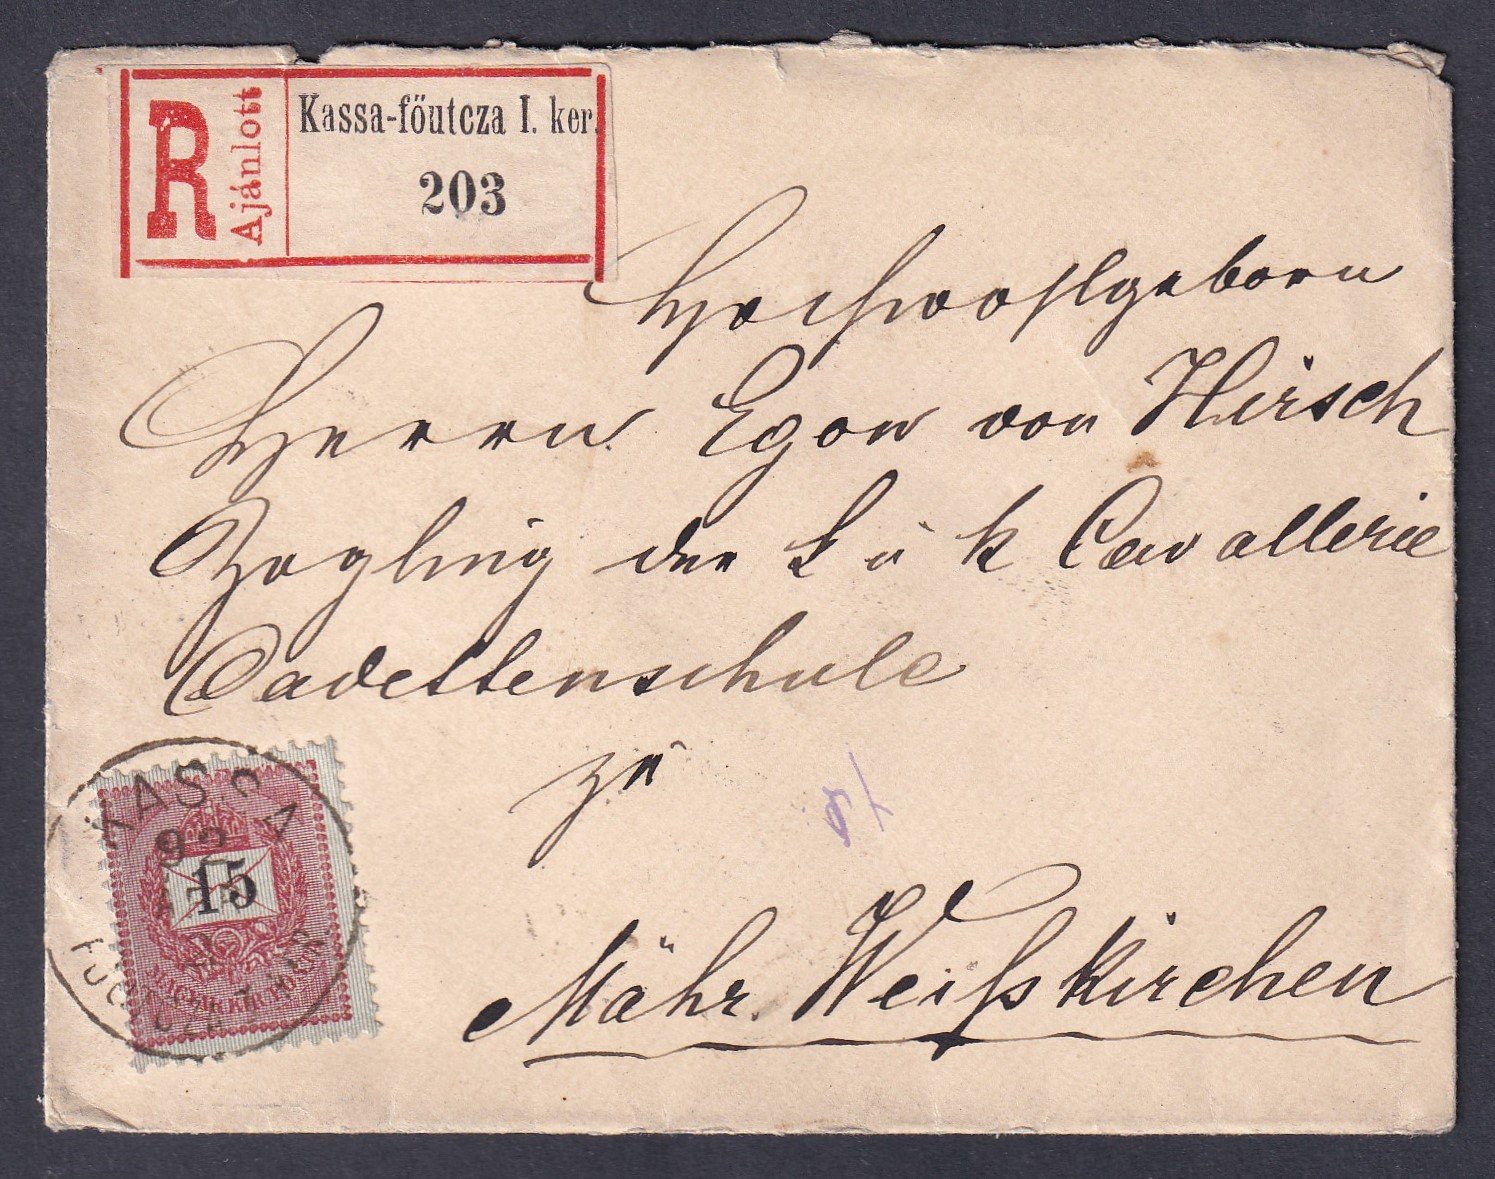 R Ajánlott
Kassa-főutcza I. ker.
203
Hochwohlgeborn
Herrn Egon von Hirsch
Zögling der k u k Cavallerie
Cadettenschule
zu
Mähr. Weißkirchen
KASSA
92
15
MAGYAR KIR. POSTA